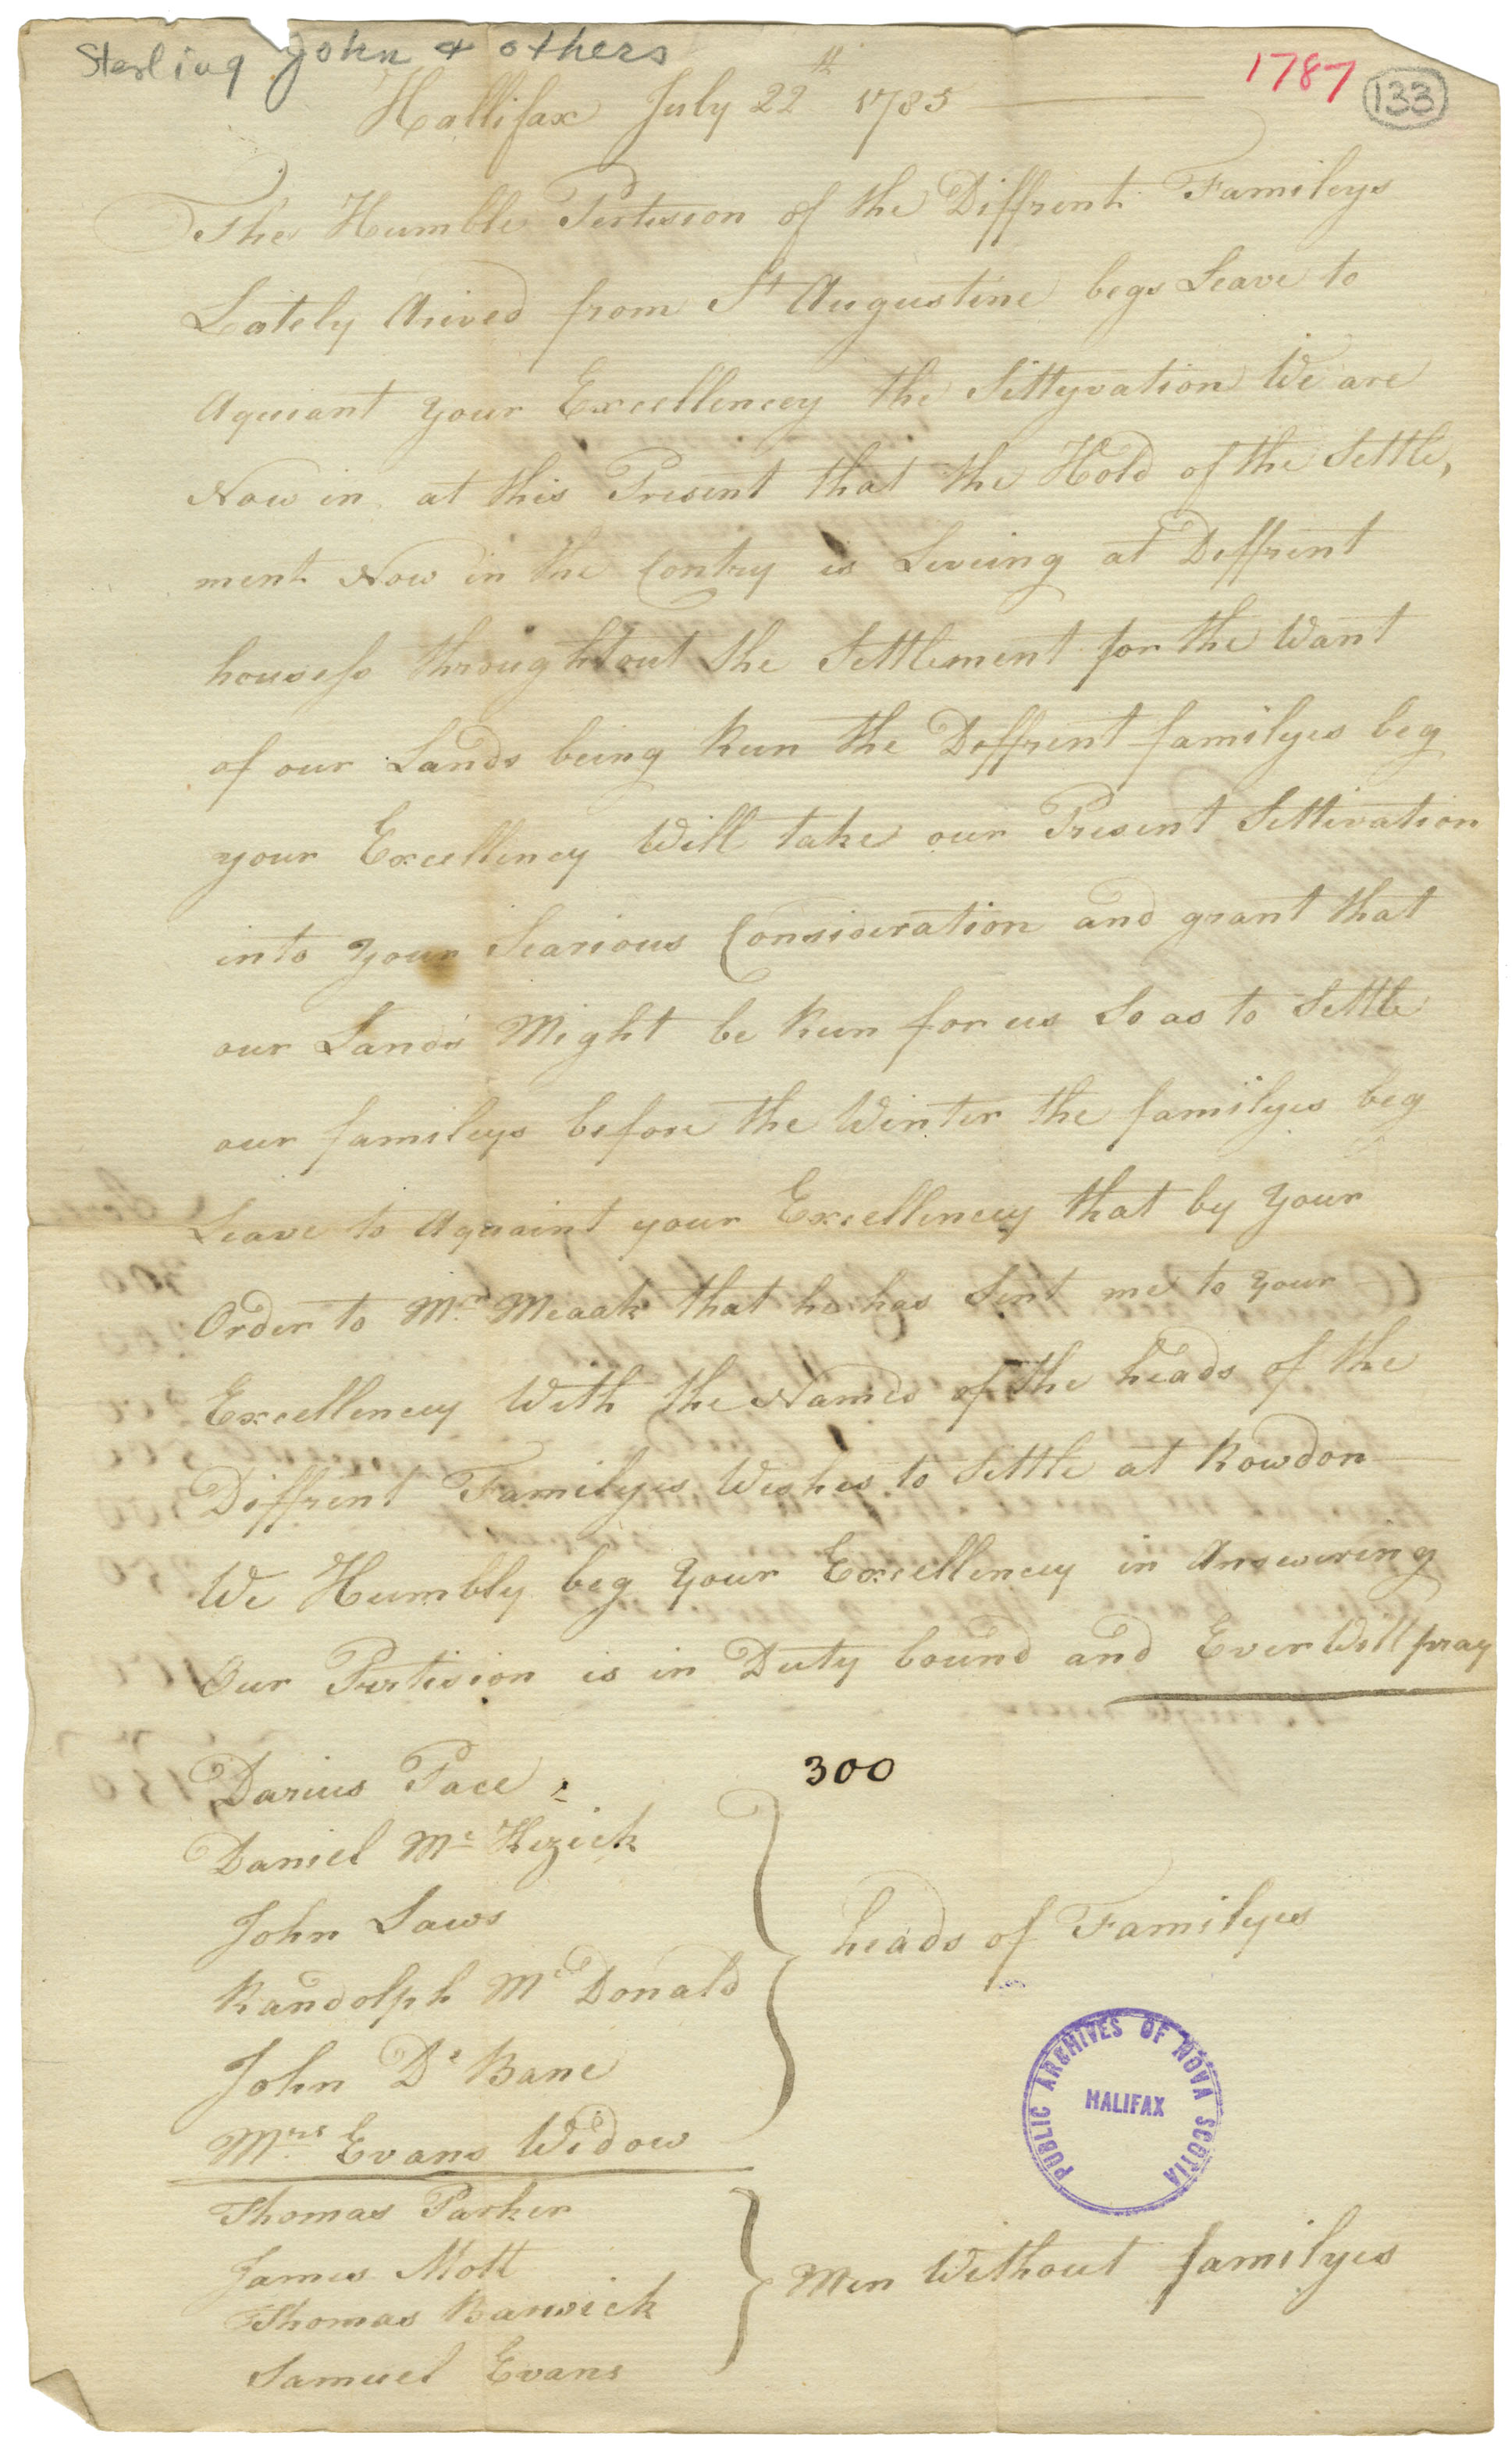 Sterling John & others
1787
133
Hallifax July 22th 1785
The Humble Pertision of the Diffrent Famileys
Lately Arived from St Augustine begs Leave to
Aquiant your Excellencey the Sittyvation We are
Now in at this Present that the Hold of the Settle,
ment Now in the Contry is Liveing at Diffrent
housess throughtout the Settlement for the Want
of our Lands being Run the Diffrent familyes beg
your Excellency Will take our Present Sittivation
into your Searious Consideration and grant that
our Lands Might be Run for us So as to Settle
our famileys before the Winter the familyes beg
Leave to Aquaint your Excellencey that by your
Order to Mr Meaak that he has Sent me to your
Excellencey With the Names of the heads of the
Diffrent Familyes Wishes to Settle at Rowdon
We Humbly beg your Excellencey in Answering
Our Pertision is in Duty bound and Ever Will pray
300
Darius Pace
Daniel Mc Kezick
John Laws
Randolph Mc Donald
John De Bane
Mrs Evans Widow
heads of Familyes
Thomas Parker
James Mott
Thomas Barwick
Samuel Evans
Men Without familyes
PUBLIC ARCHIVES OF NOVA SCOTIA
HALIFAX